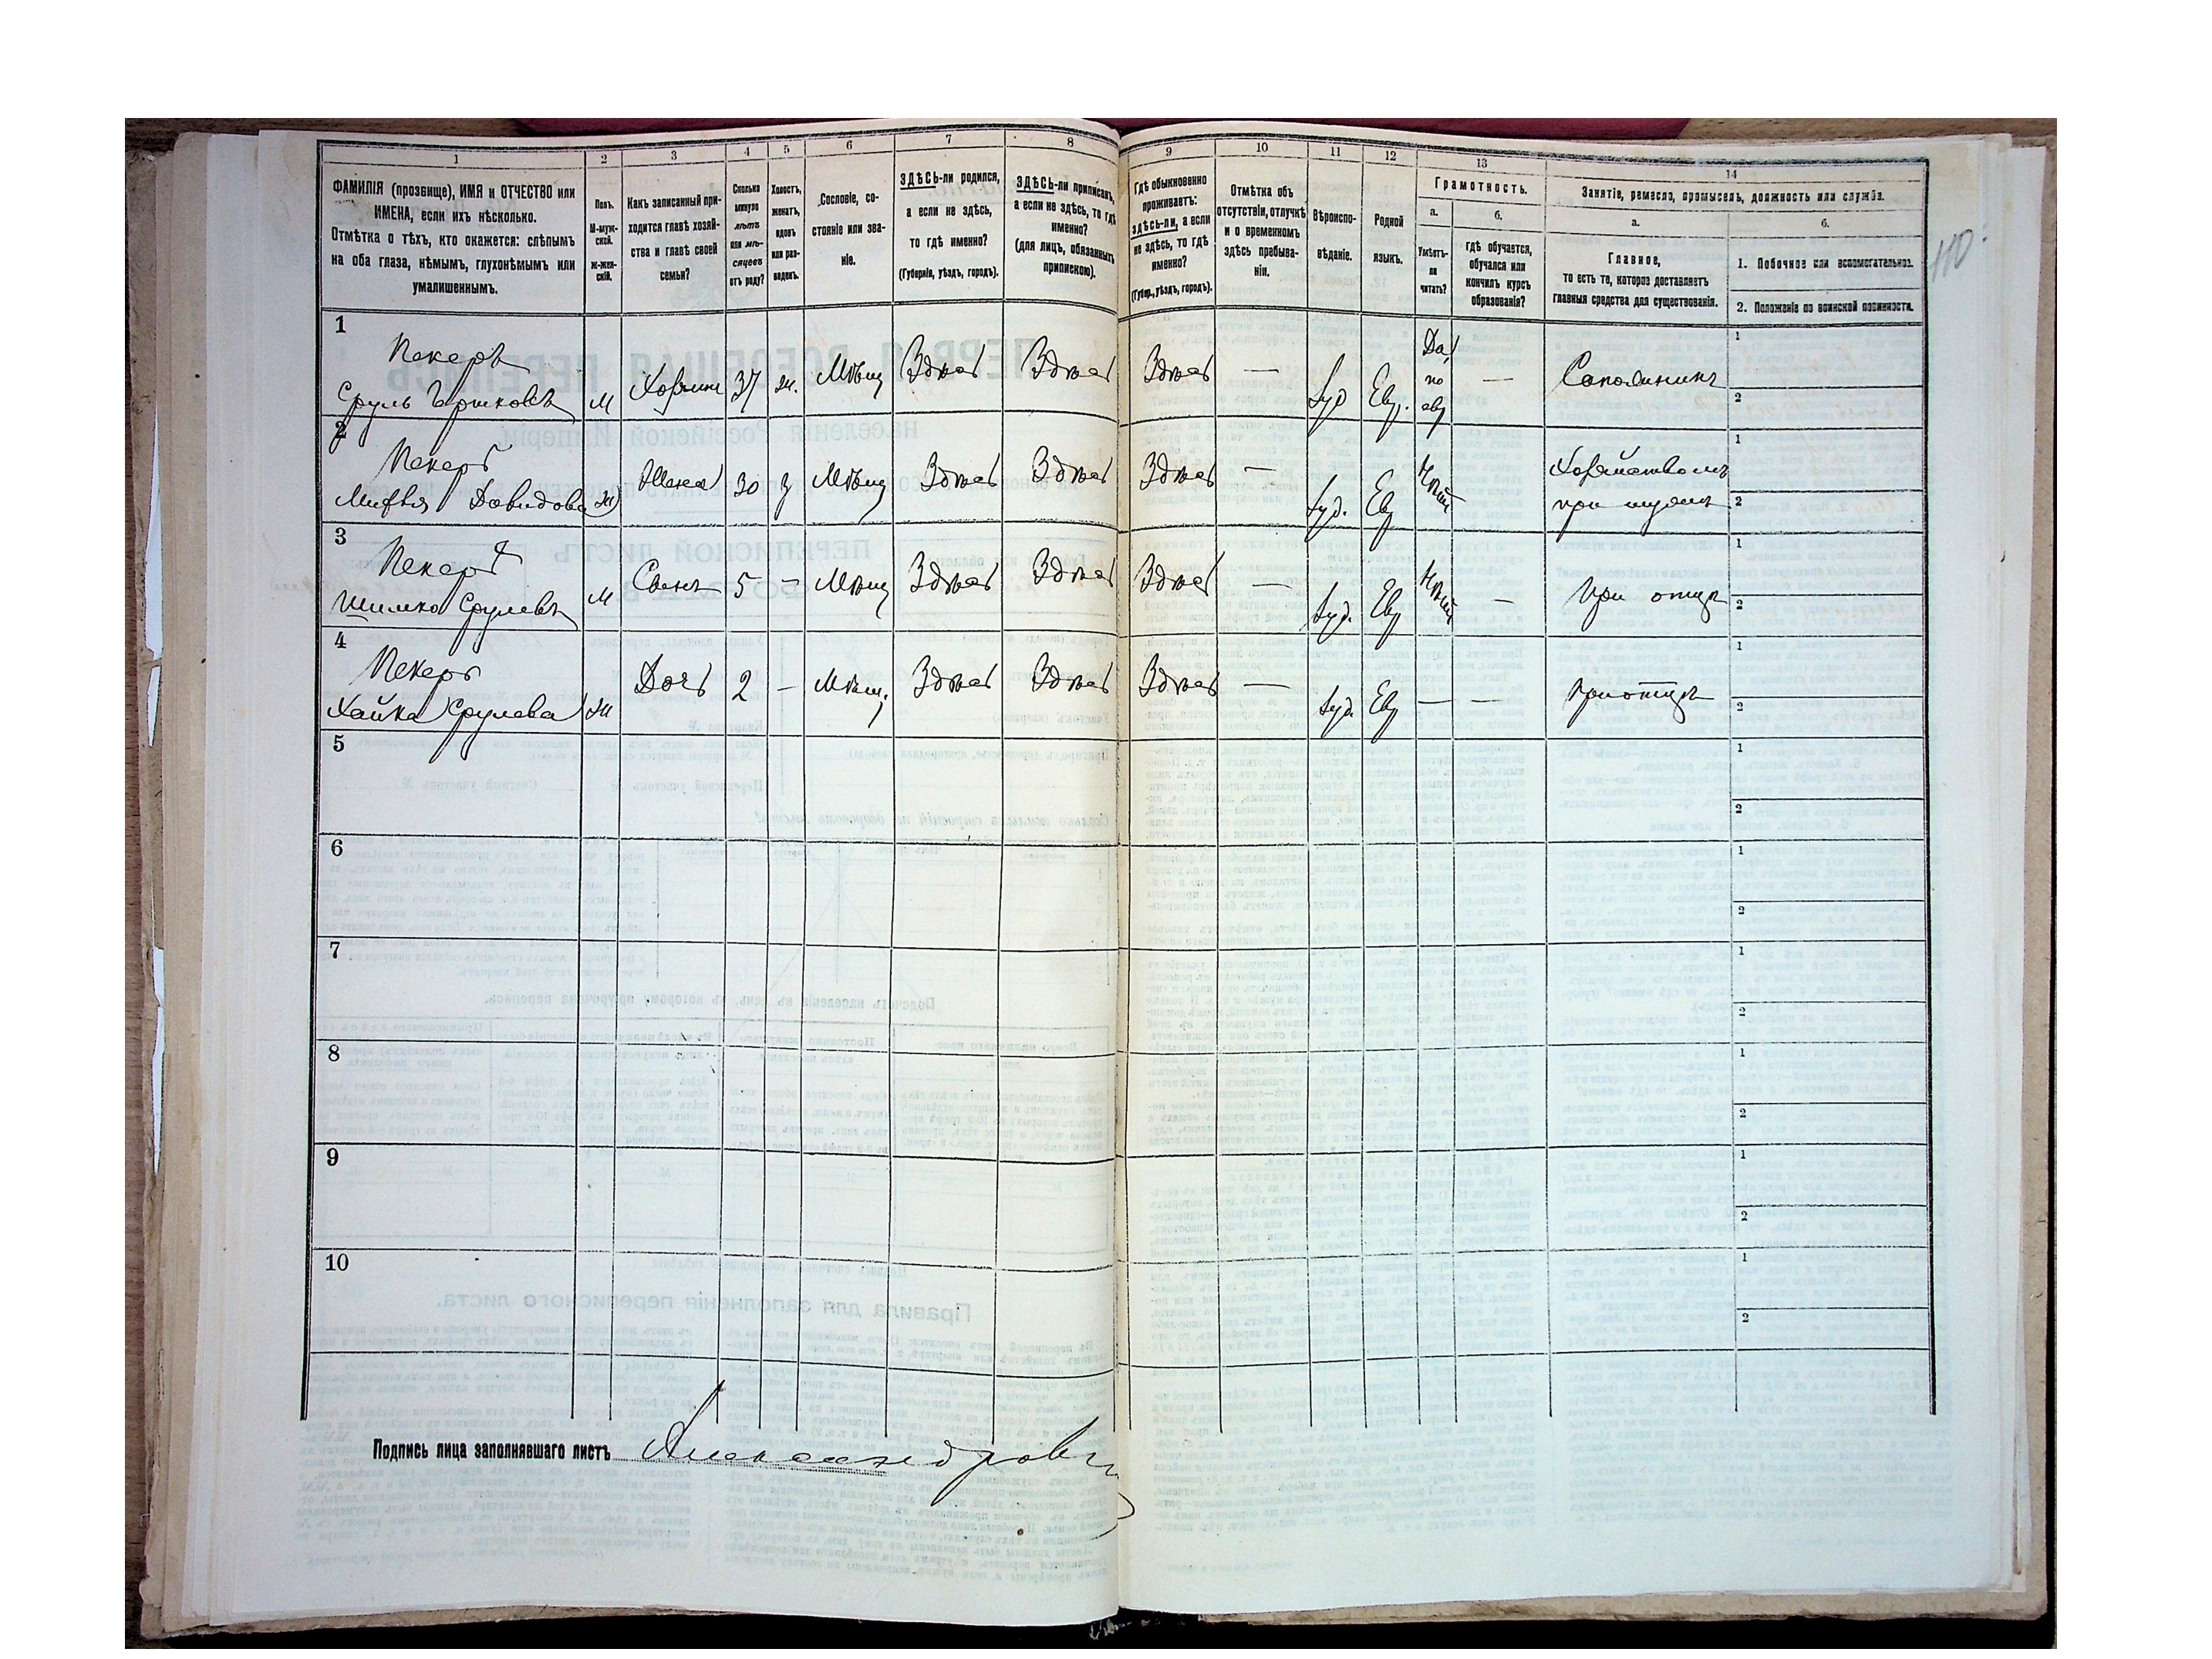 1 2 3 4 5 6 7 8 9 10 11 12 13 14
ФАМИЛІЯ (прозвище), ИМЯ и ОТЧЕСТВО или ИМЕНА, если ихъ нѣсколько.
Отмѣтка о тѣхъ, кто окажется: слѣпымъ на оба глаза, нѣмымъ, глухонѣмымъ или умалишеннымъ.
Полъ. М-мужской. Ж-женскій.
Какъ записанный приходится главѣ хозяйства и главѣ своей семьи?
Сколько минуло лѣтъ или мѣсяцевъ отъ роду?
Холостъ, женатъ, вдовъ или разведенъ.
Сословіе, состояніе или званіе.
ЗДѢСЬ-ли родился, а если не здѣсь, то гдѣ именно?
(Губернія, уѣздъ, городъ).
ЗДѢСЬ-ли приписанъ, а если не здѣсь, то гдѣ именно?
(для лицъ, обязанныхъ припискою).
Гдѣ обыкновенно проживаетъ: здѣсь-ли, а если не здѣсь, то гдѣ именно?
(Губер., уѣздъ, городъ).
Отмѣтка объ отсутствіи, отлучкѣ и о временномъ здѣсь пребываніи.
Вѣроисповѣданіе.
Родной языкъ.
Грамотность.
а.
Умѣетъ-ли читать?
б.
гдѣ обучается, обучался или кончилъ курсъ образованія?
Занятіе, ремесло, промыселъ, должность или служба.
а.
Главное,
то есть то, которое доставляетъ главныя средства для существованія.
б.
1. Побочное или вспомогательное.
2. Положеніе по воинской повинности.
110
1
Пекаръ
Сруль М Хозяинъ 37 ж. Мѣщ Здѣсь Здѣсь Здѣсь — Іуд Евр. Да, по евр — 1 2
2
Пекарь
Давидова Ж Жена 30 з Мѣщ Здѣсь Здѣсь Здѣсь — Іуд. Евр Хозяйствомъ при мужѣ 1 2
3
Пекарь
Шимко Срулевъ М Сынъ 5 - Мѣщ Здѣсь Здѣсь Здѣсь — Іуд. Евр — при отцѣ 1 2
4
Пекарь
Хайка Срулева Ж Дочь 2 - Мѣщ. Здѣсь Здѣсь Здѣсь — Іуд. Евр — — при отцѣ 1 2
5 1 2
6 1 2
7 1 2
8 1 2
9 1 2
10 1 2
Подпись лица заполнявшаго листъ